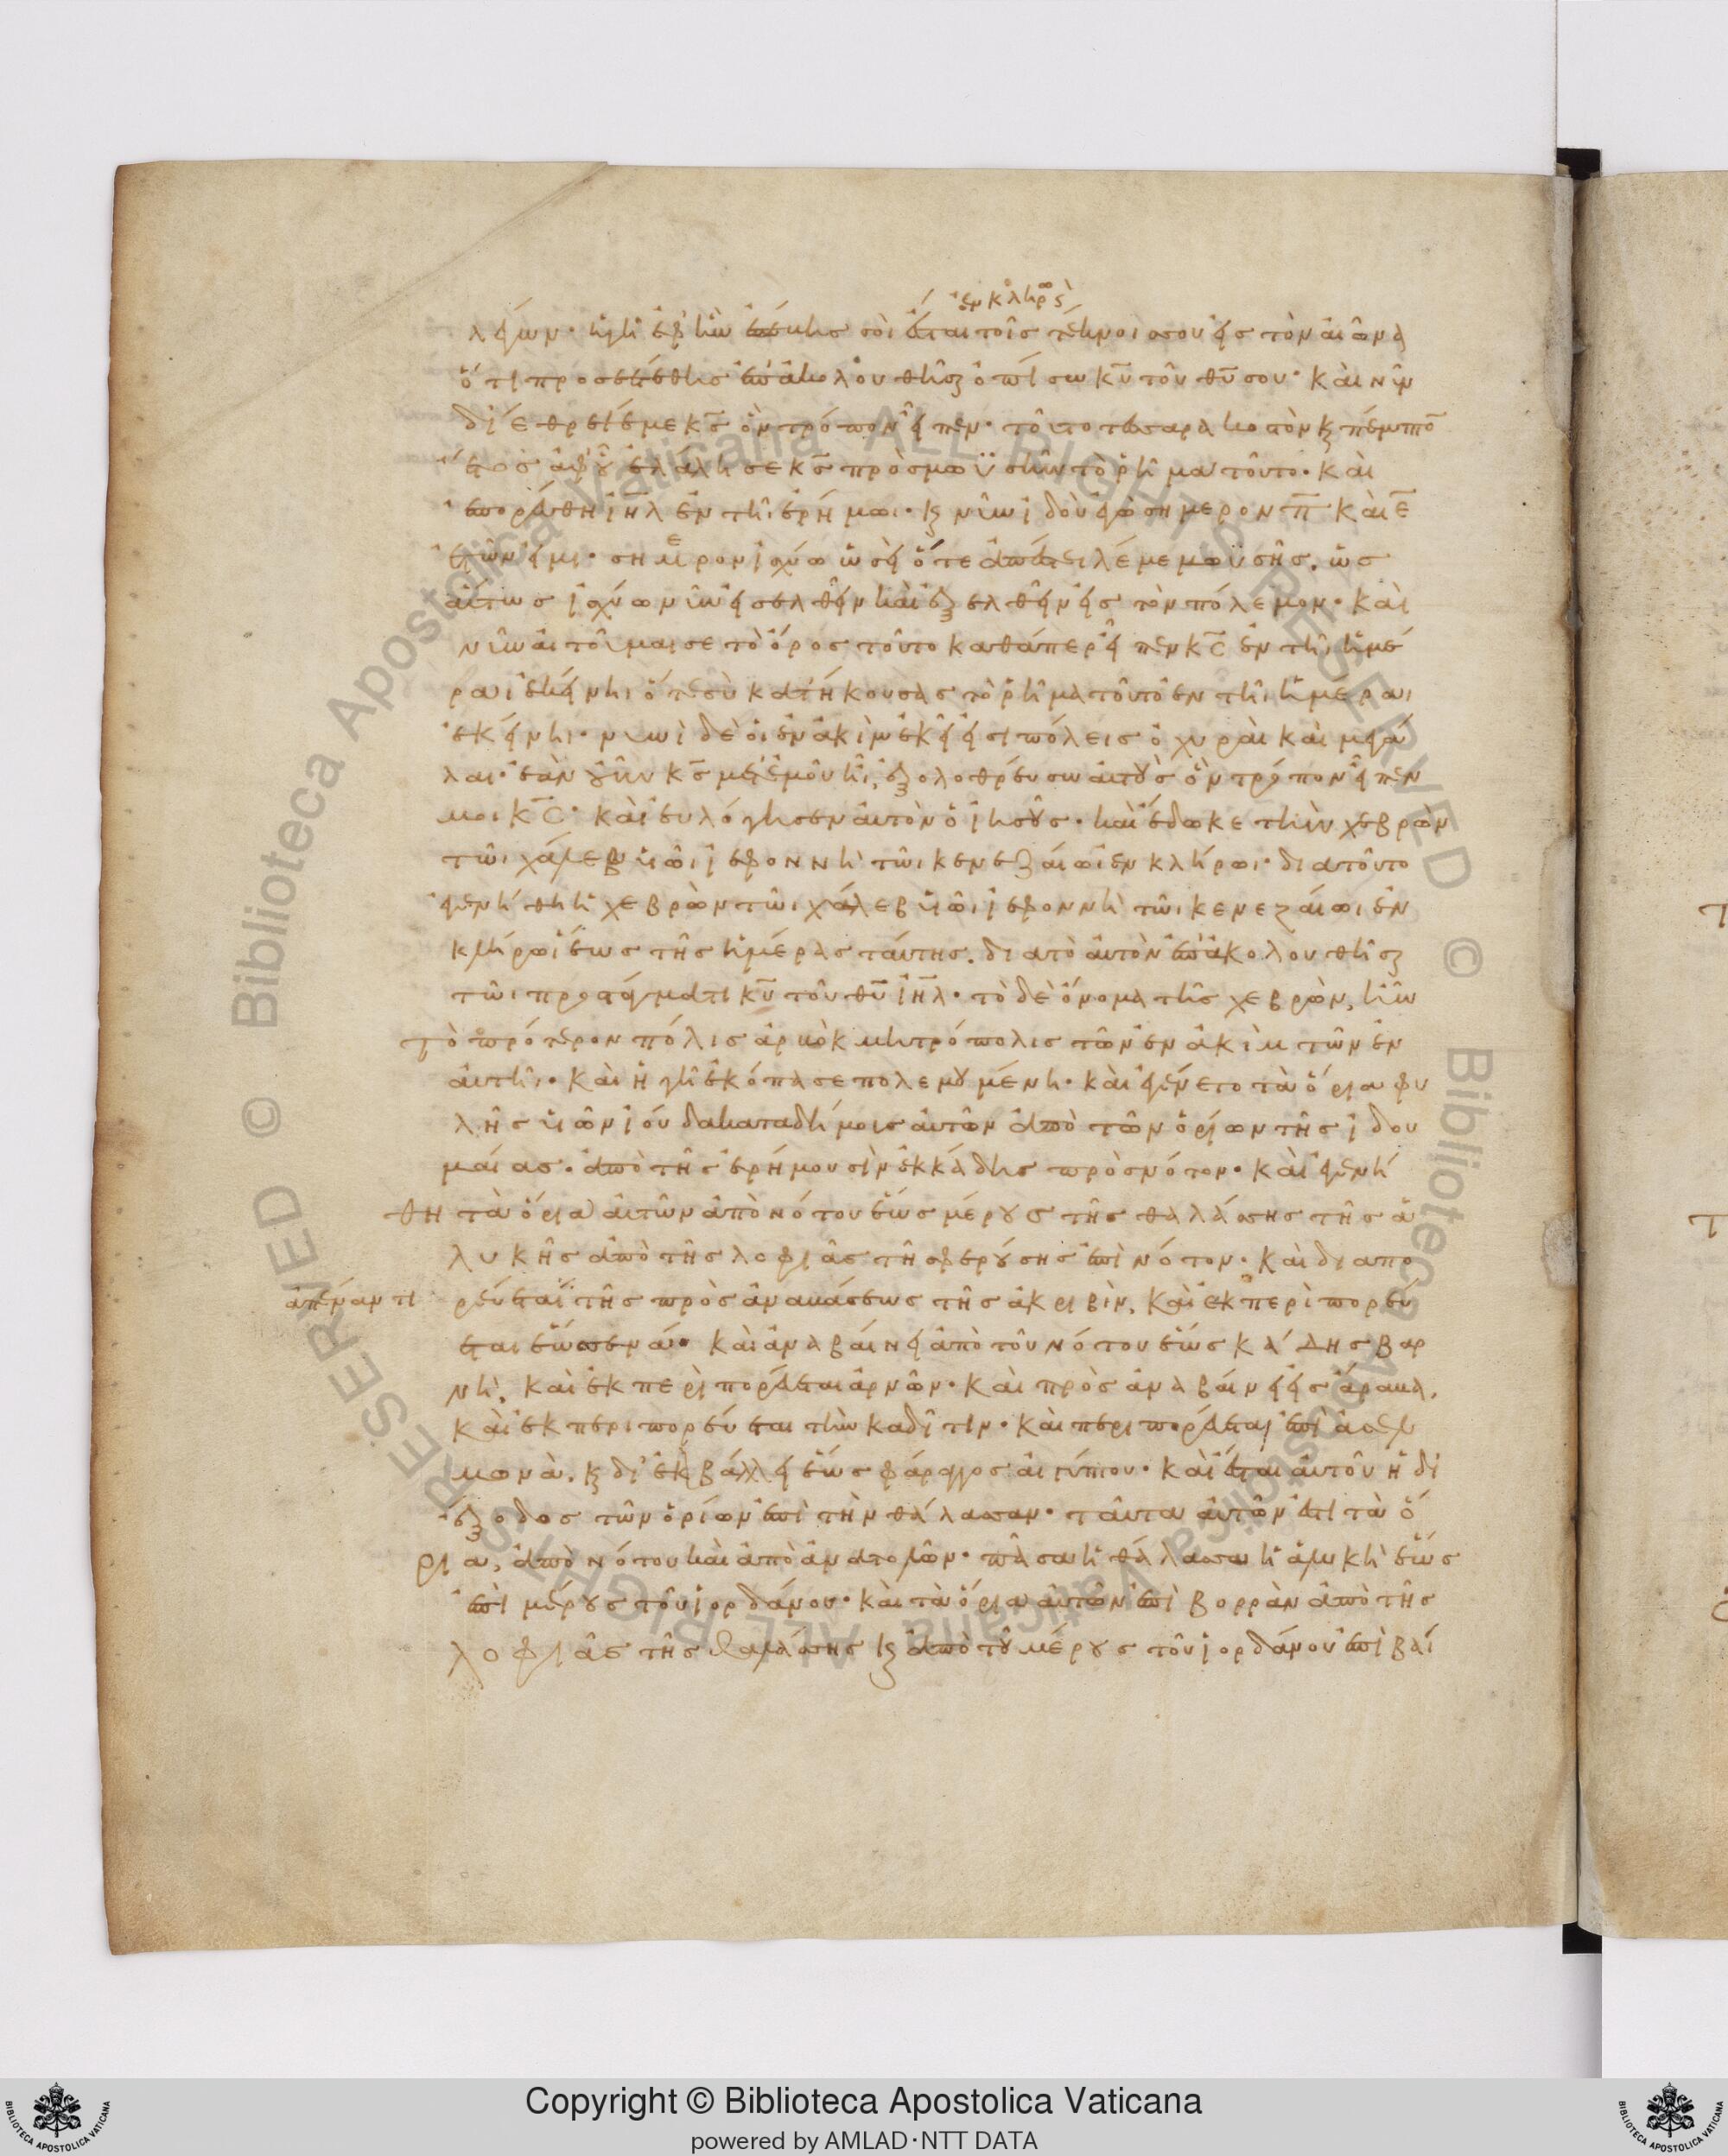 ἐν κλήρω
λέγων· ἡ γῆ ἐφ' ἣν ἐπέβης σοὶ ἔσται τοῖς τέκνοις σου εἰς τὸν αἰῶνα
ὅτι προσετέθης ἐπακολουθῆσαι ὀπίσω κ̅υ̅ τοῦ θ̅υ̅ σου· καὶ νῦν
διέθρεψέ με κ̅ς̅ ὃν τρόπον εἶπεν· τοῦτο τεσσαρακοστὸν κ πέμπτο
ἔτος ἀφ' οὗ ἐλάλησε κ̅ς̅ πρὸς μωϋσῆν τὸ ῥῆμα τοῦτο· καὶ
ἐπορεύθη ι̅η̅λ̅ ἐν τῆι ἐρήμωι· κ νῦν ἰδοὺ ἐγὼ σήμερον π̅ καὶ ε̅
ἐτῶν εἰμι· σήμερον ἰσχύω ὡσεὶ ὅτε ἀπέστειλέ με μωϋσῆς. ὡς
αὕτως ἰσχύω νῦν εἰσελθεῖν καὶ ἐξελθεῖν εἰς τὸν πόλεμον· καὶ
νῦν αἰτοῦμαι σε τὸ ὄρος τοῦτο καθάπερ εἶπεν κ̅ς̅ ἐν τῆι ἡμέ
ραι ἐκείνηι ὅτι σὺ κατήκουσας τὸ ῥῆμα τοῦτο ἐν τῆι ἡμέραι
ἐκείνηι· νυνὶ δὲ οἱ ἐνακὶμ ἐκεῖ εἰσι πόλεις ὀχυραὶ καὶ μεγά
λαι· ἐὰν οὖν κ̅ς̅ μετ' ἐμοῦ ἦι, ἐξολοθρεύσω αὐτοὺς ὃν τρόπον εἶπεν
μοι κ̅ς̅· καὶ εὐλόγησεν αὐτὸν ὁ ἰησοῦς· καὶ ἔδωκε τὴν χεβρὼν
τῶι χάλεβ υἱῶι ἰεφοννὴ τῶι κενεζαίωι ἐν κλήρωι· διατοῦτο
ἐγενήθη ἡ χεβρὼν τῶι χάλεβ υἱῶι ἰεφοννὴ τῶι κενεζαίωι ἐν
κλήρωι ἕως τῆς ἡμέρας ταύτης. διατὸ αὐτὸν ἐπακολουθῆσαι
τῶι προστάγματι κ̅υ̅ τοῦ θ̅υ̅ ι̅η̅λ̅· τὸ δὲ ὄνομα τῆς χεβρὼν, ἦν
τὸ πρότερον πόλις ἀρβὸκ μητρόπολις τῶν ἐνακὶμ τῶν ἐν
αὐτῆι· καὶ ἡ γῆ ἐκόπασε πολεμουμένη· καὶ ἐγένετο τὰ ὅρια φυ
λῆς υἱῶν ἰούδα κατα δήμους αὐτῶν ἀπὸ τῶν ὁρίων τῆς ἰδου
μαίας. ἀπὸ τῆς ἐρήμου σὶν ἐκκάδης πρὸς νότον· καὶ ἐγενή
θη τὰ ὅρια αὐτῶν ἀπὸ νότου ἕως μέρους τῆς θαλάσσης τῆς ἁ
λυκῆς ἀπὸ τῆς λοφιᾶς τῆς φερούσης ἐπὶ νότον· καὶ διαπο
ἀπέναντι
ρεύεται τῆς προσαναβάσεως τῆς ἀκραβὶν, καὶ ἐκπεριπορεύ
εται ἕως σενά· καὶ ἀναβαίνει ἀπὸ τοῦ νότου ἕως κάδης βαρ
νὴ, καὶ ἐκπεριπορεύεται ἀρνῶν· καὶ προσαναβαίνει εἰς ἄρακα,
καὶ ἐκπεριπορεύεται τὴν καδῆτιν· καὶ περιπορεύεται ἐπὶ ἀσελ
μωνὰ. κ διεκβάλλει ἕως φάραγγος αἰγύπτου· καὶ ἔσται αὐτοῦ ἡ δι
έξοδος τῶν ὁρίων ἐπὶ τὴν θάλασσαν· ταῦτα αὐτῶν ἐστὶ τὰ ὅ
ρια, ἀπὸ νότου καὶ ἀπὸ ἀνατολῶν· πᾶσα ἡ θάλασσα ἡ ἁλυκὴ ἕως
ἐπὶ μέρους τοῦ ἰορδάνου· καὶ τὰ ὅρια αὐτῶν ἐπὶ βορρὰν ἀπὸ τῆς
λοφιᾶς τῆς θαλάσσης κ ἀπὸ τοῦ μέρους τοῦ ἰορδάνου ἐπιβαί
© Biblioteca Apostolica Vaticana ALL RIGHTS RESERVED © Biblioteca Apostolica Vaticana ALL RIGHTS RESERVED
Copyright © Biblioteca Apostolica Vaticana
powered by AMLAD·NTT DATA
BIBLIOTECA APOSTOLICA VATICANA
BIBLIOTECA APOSTOLICA VATICANA